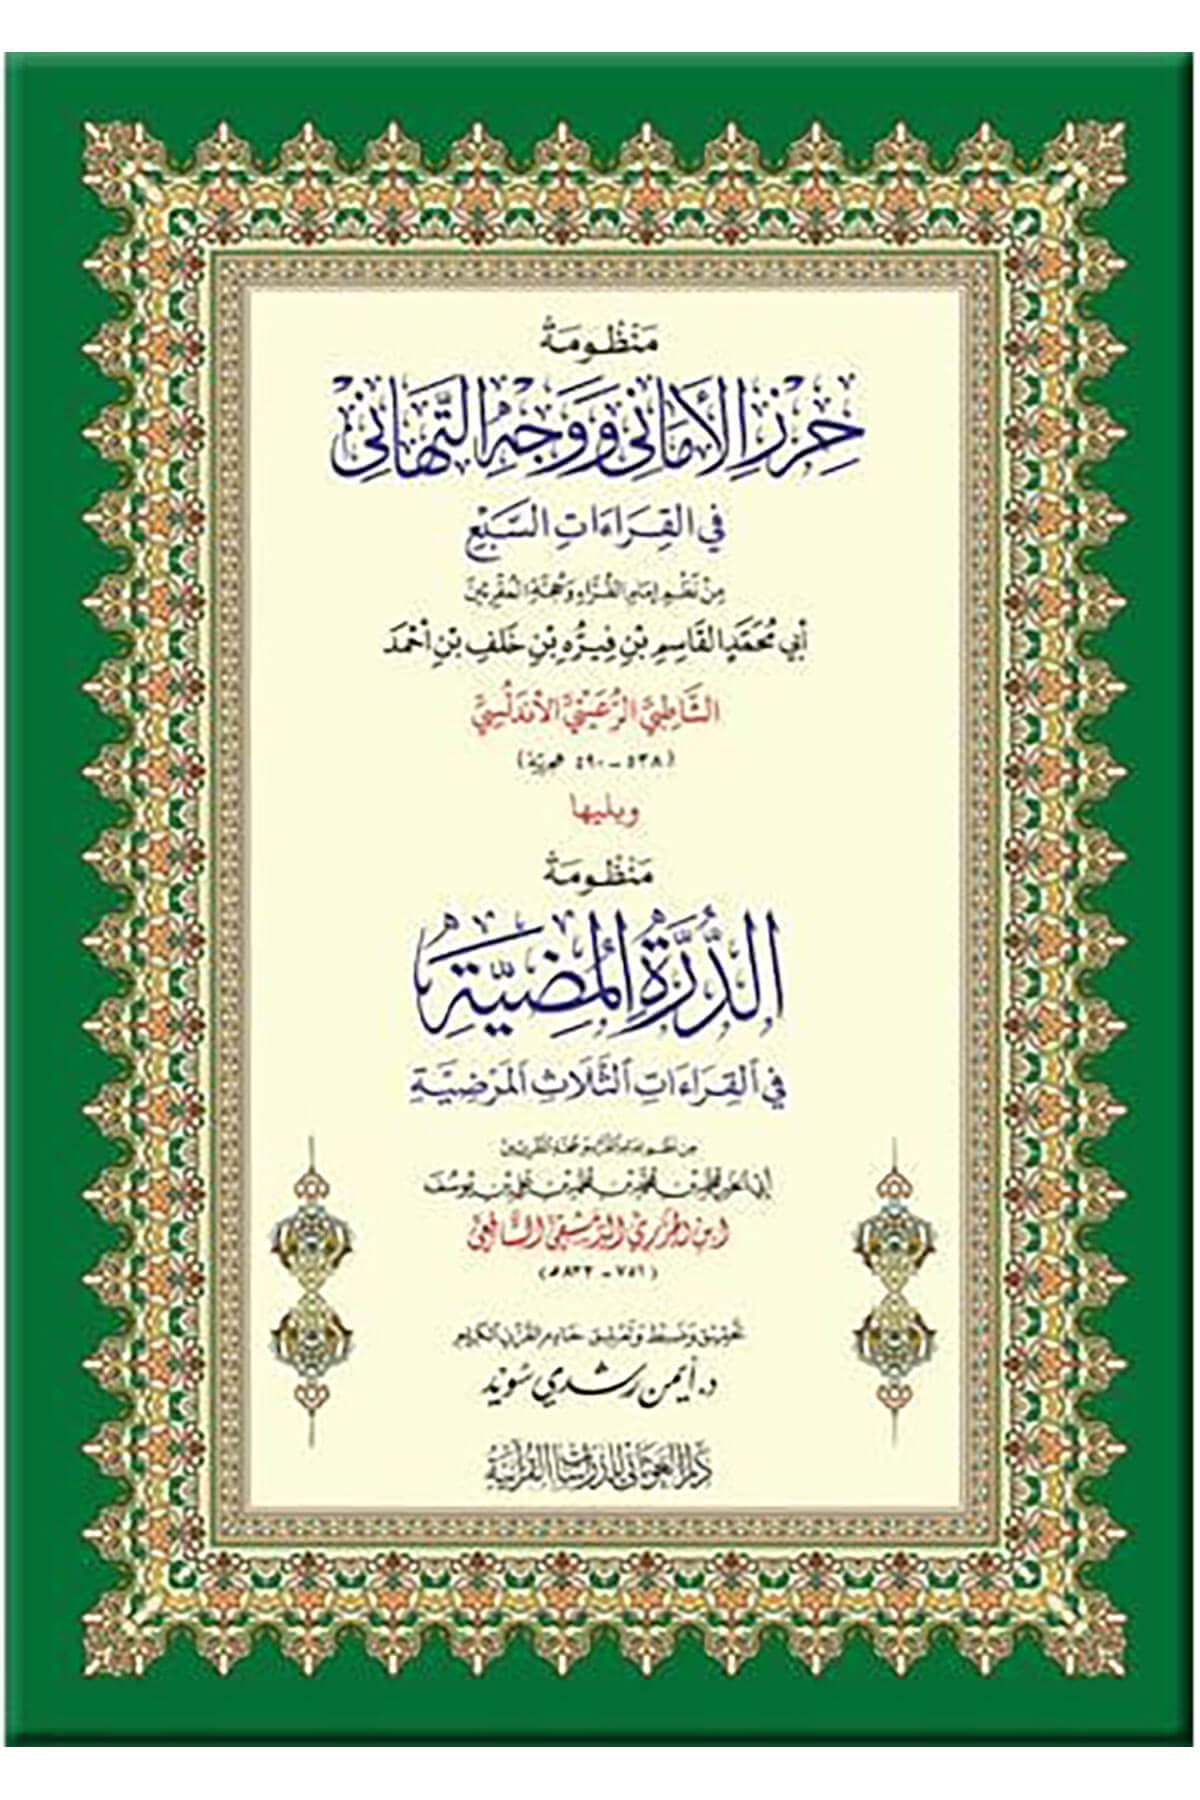 مَنْظُومَةُ
حِرْزِ الْأَمَانِي وَوَجْهِ التَّهَانِي
فِي الْقِرَاءَاتِ السَّبْعِ
مِنْ نَظْمِ إِمَامِ القُرَّاءِ وَحُجَّةِ المُقْرِئِينَ
أَبِي مُحَمَّدٍ القَاسِمِ بْنِ فِيرُّه بْنِ خَلَفِ بْنِ أَحْمَدَ
الشَّاطِبِيِّ الرُّعَيْنِيِّ الأَنْدَلُسِيِّ
(٥٣٨ - ٥٩٠ هجرية)
ويليها
مَنْظُومَةُ
الدُّرَّةِ الْمُضِيَّةِ
فِي الْقِرَاءَاتِ الثَّلَاثِ الْمَرْضِيَّةِ
مِن نظم إمام القراء وحجة المقرئين
أبي الخير محمد بن محمد بن محمد بن علي بن يوسف
ابن الجزري الدمشقي الشافعي
(٧٥١ - ٨٣٣ هـ)
تحقيق وضبط وتعليق خادم القرآن الكريم
د. أيمن رشدي سُوَيْد
دَار الغوثاني للدراسات القرآنية